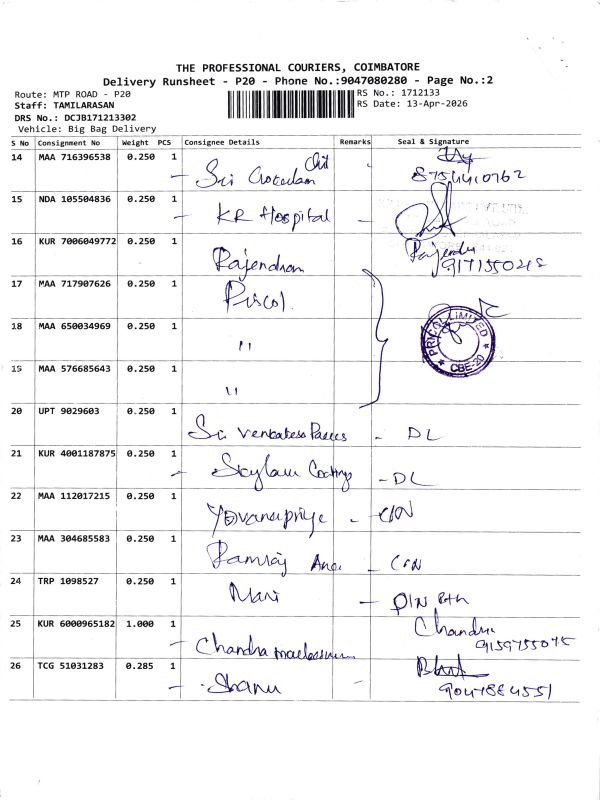 THE PROFESSIONAL COURIERS, COIMBATORE
Delivery Runsheet - P20 - Phone No.:9047080280 - Page No.:2
Route: MTP ROAD - P20
RS No.: 1712133
Staff: TAMILARASAN
RS Date: 13-Apr-2026
DRS No.: DCJB171213302
Vehicle: Big Bag Delivery
S No Consignment No Weight PCS Consignee Details Remarks Seal & Signature
14 MAA 716396538 0.250 1
Sri
15 NDA 105504836 0.250 1
KR Hospital
16 KUR 7006049772 0.250 1
Rajendran
17 MAA 717907626 0.250 1
18 MAA 650034969 0.250 1
"
PRICOL LIMITED
CBE-20
19 MAA 576685643 0.250 1
"
20 UPT 9029603 0.250 1
Sri Venkatesa - DL
21 KUR 4001187875 0.250 1
- DL
22 MAA 112017215 0.250 1
23 MAA 304685583 0.250 1
Ramraj
24 TRP 1098527 0.250 1
Mari
25 KUR 6000965182 1.000 1
Chandra
26 TCG 51031283 0.285 1
Shanu